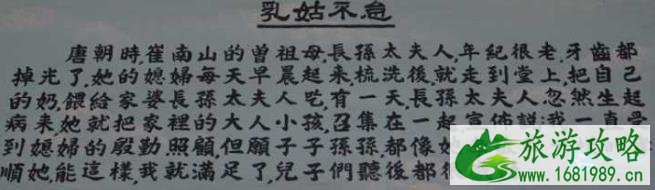 乳姑不怠
唐朝時,崔南山的曾祖母,長孫太夫人,年紀很老,牙齒都
掉光了,她的媳婦每天早晨起來,梳洗後就走到堂上,把自己
的奶,餵給家婆長孫太夫人吃,有一天,長孫太夫人忽然生起
病來,她就把家裡的大人小孩,召集在一起宣佈説:我一直受
到媳婦的殷勤照顧,但願子子孫孫都像
順她,能這樣,我就滿足了,兒子們聽後都很
旅游攻略
www.1681989.cn